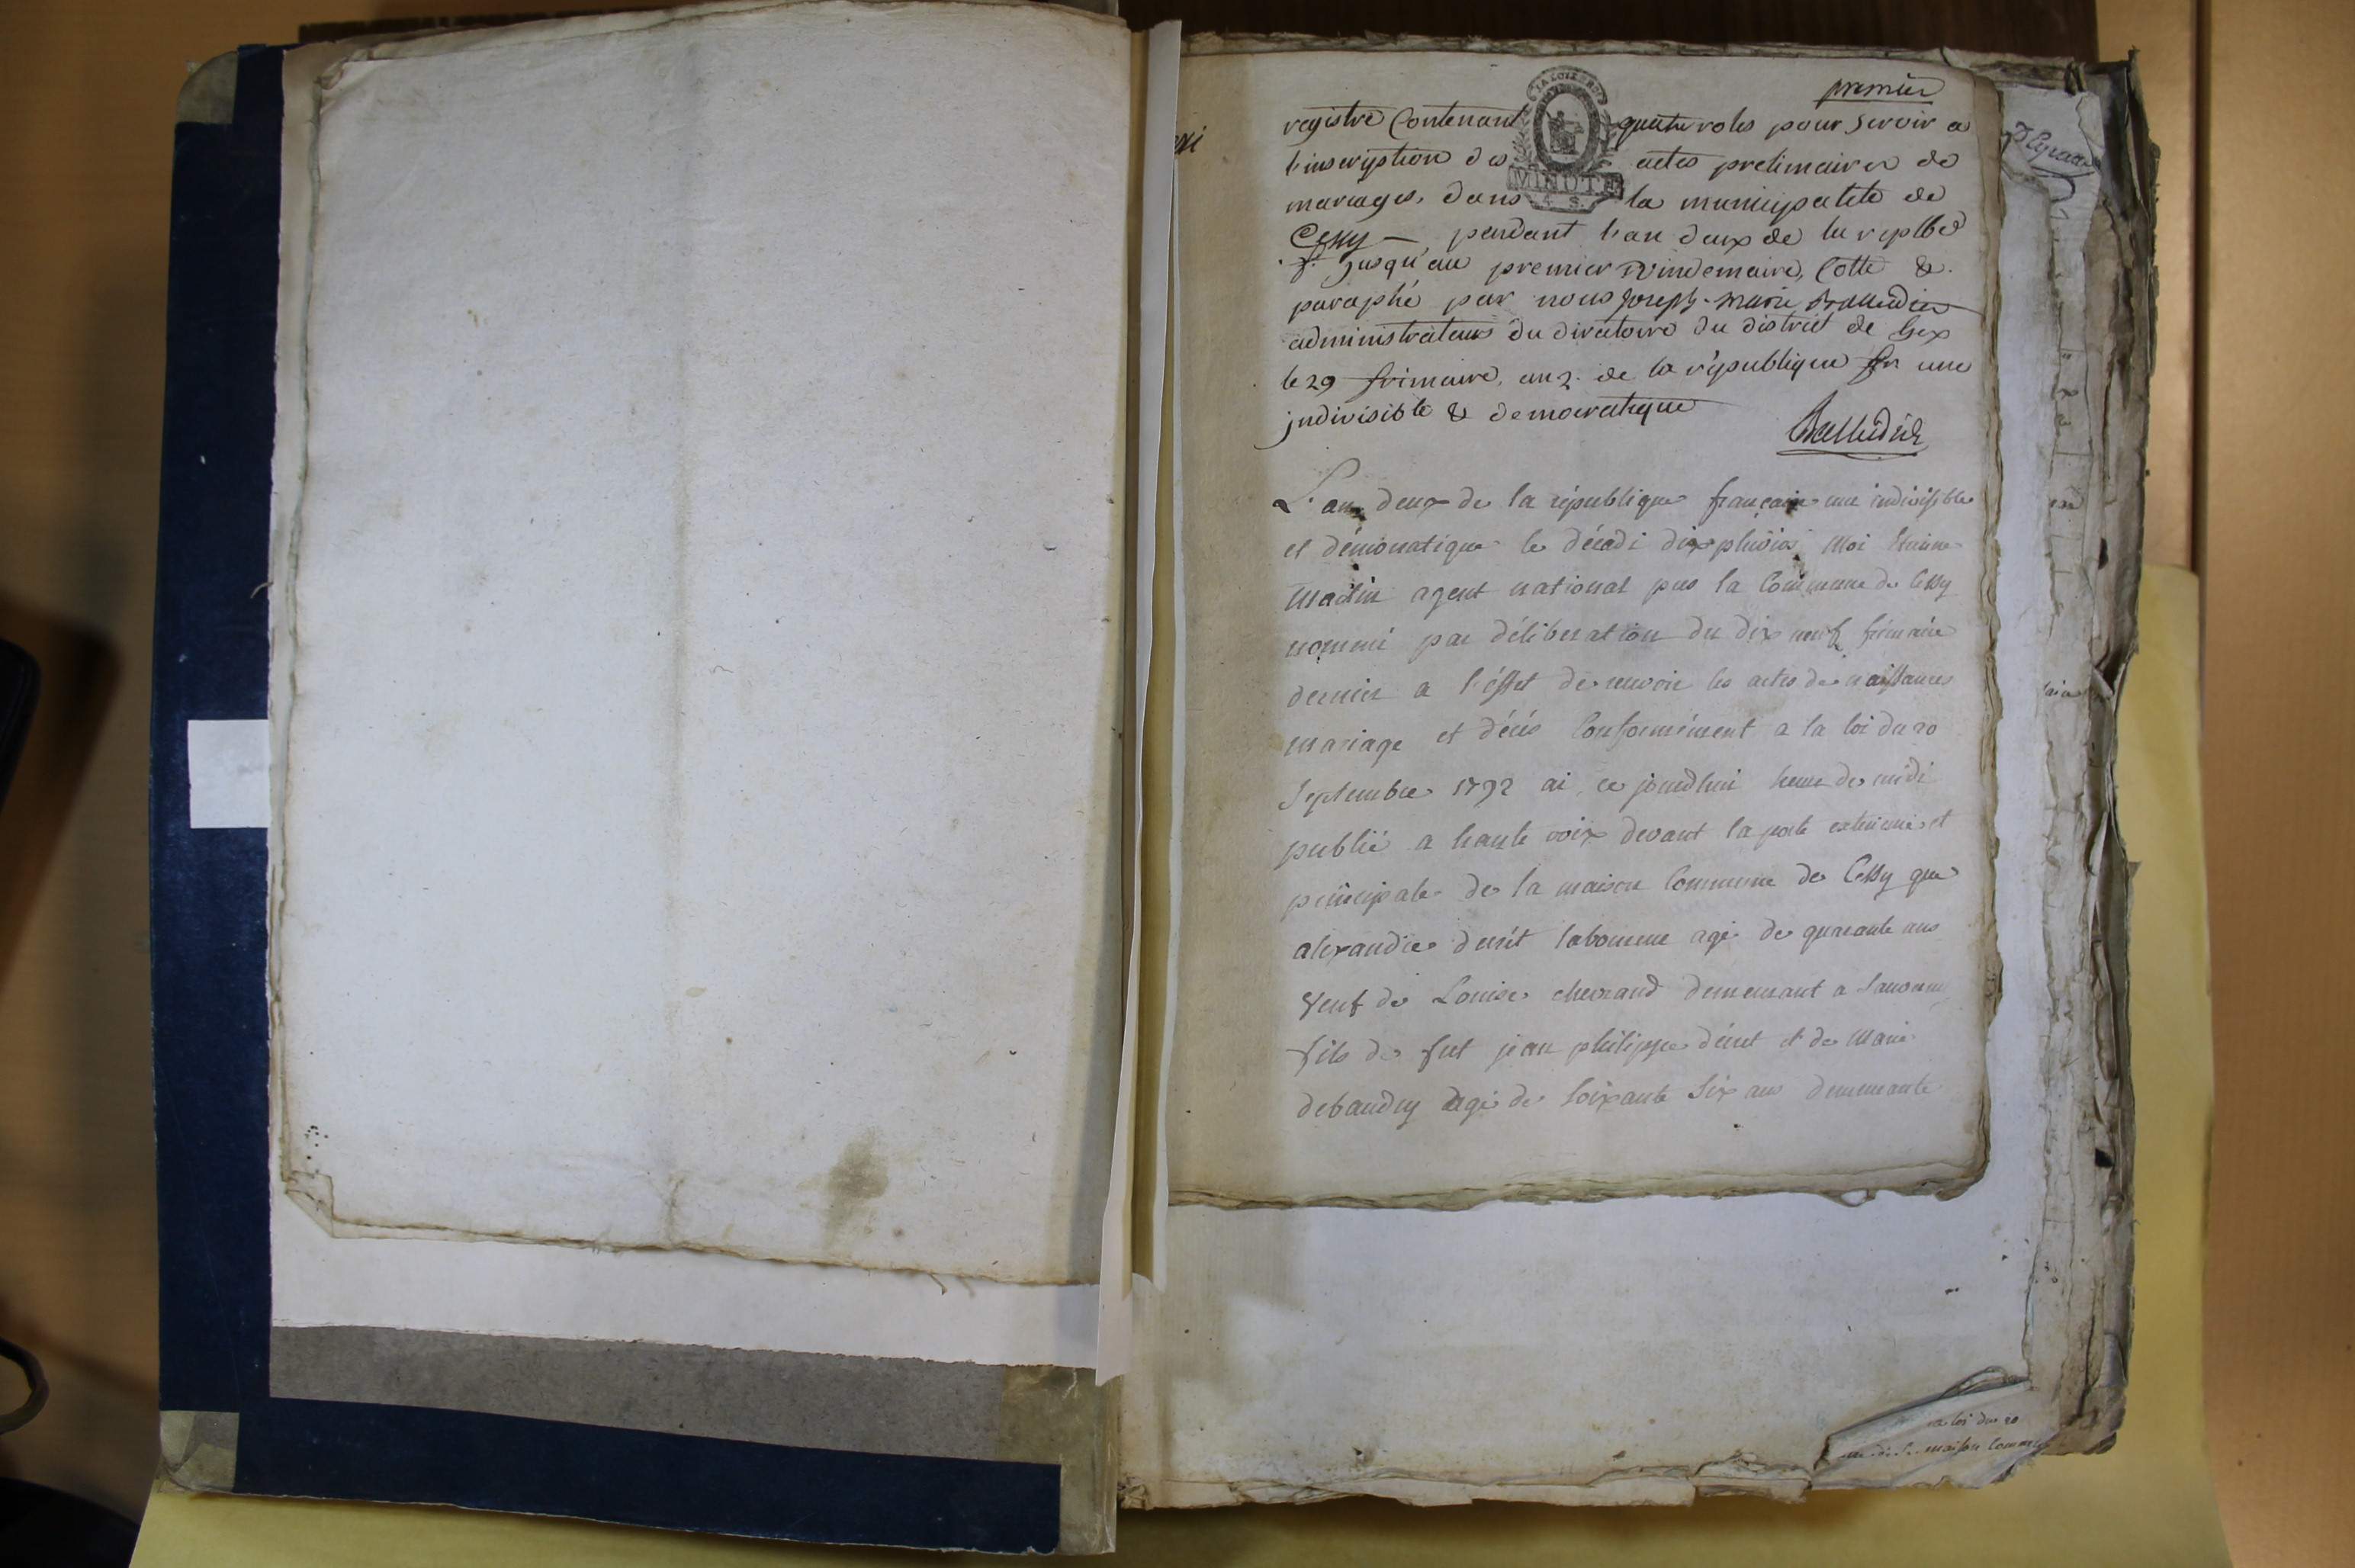 premier
registre Contenant quatre roles pour servir a
l'inscription des actes prelimaires de
MINUTE
4. S.
mariages, dans la municipalité de
Cessy — pendant l'an deux de la replbe
jusqu'au premier vindemaire, Cotté &
paraphé par nous joseph-marie
administrateurs du directoire du district de Gex
le 29 frimaire, an 2. de la république fr une
jndivisible & democratique
L'an deux de la république française une indivisible
et démocratique le décadi dix pluviôs Moi Etienne
Martin agent national pres la Commune de Cessy
nommé par délibération du dix neuf frimaire
dernier a l'éffet de recevoir les actes de naissances
mariage et décés Conformément a la loi du 20
Septembre 1792 ai ce jourdhui heure de midi
publié a haute voix devant la porte exterieure et
principale de la maison Commune de Cessy que
alexandre laboureur agé de quarante ans
Veuf de Louise chevrand demeurant a
fils de fut jean philippe et de Marie
debaudry agé de soixante six ans demeurante
a loi du 20
maison Commu